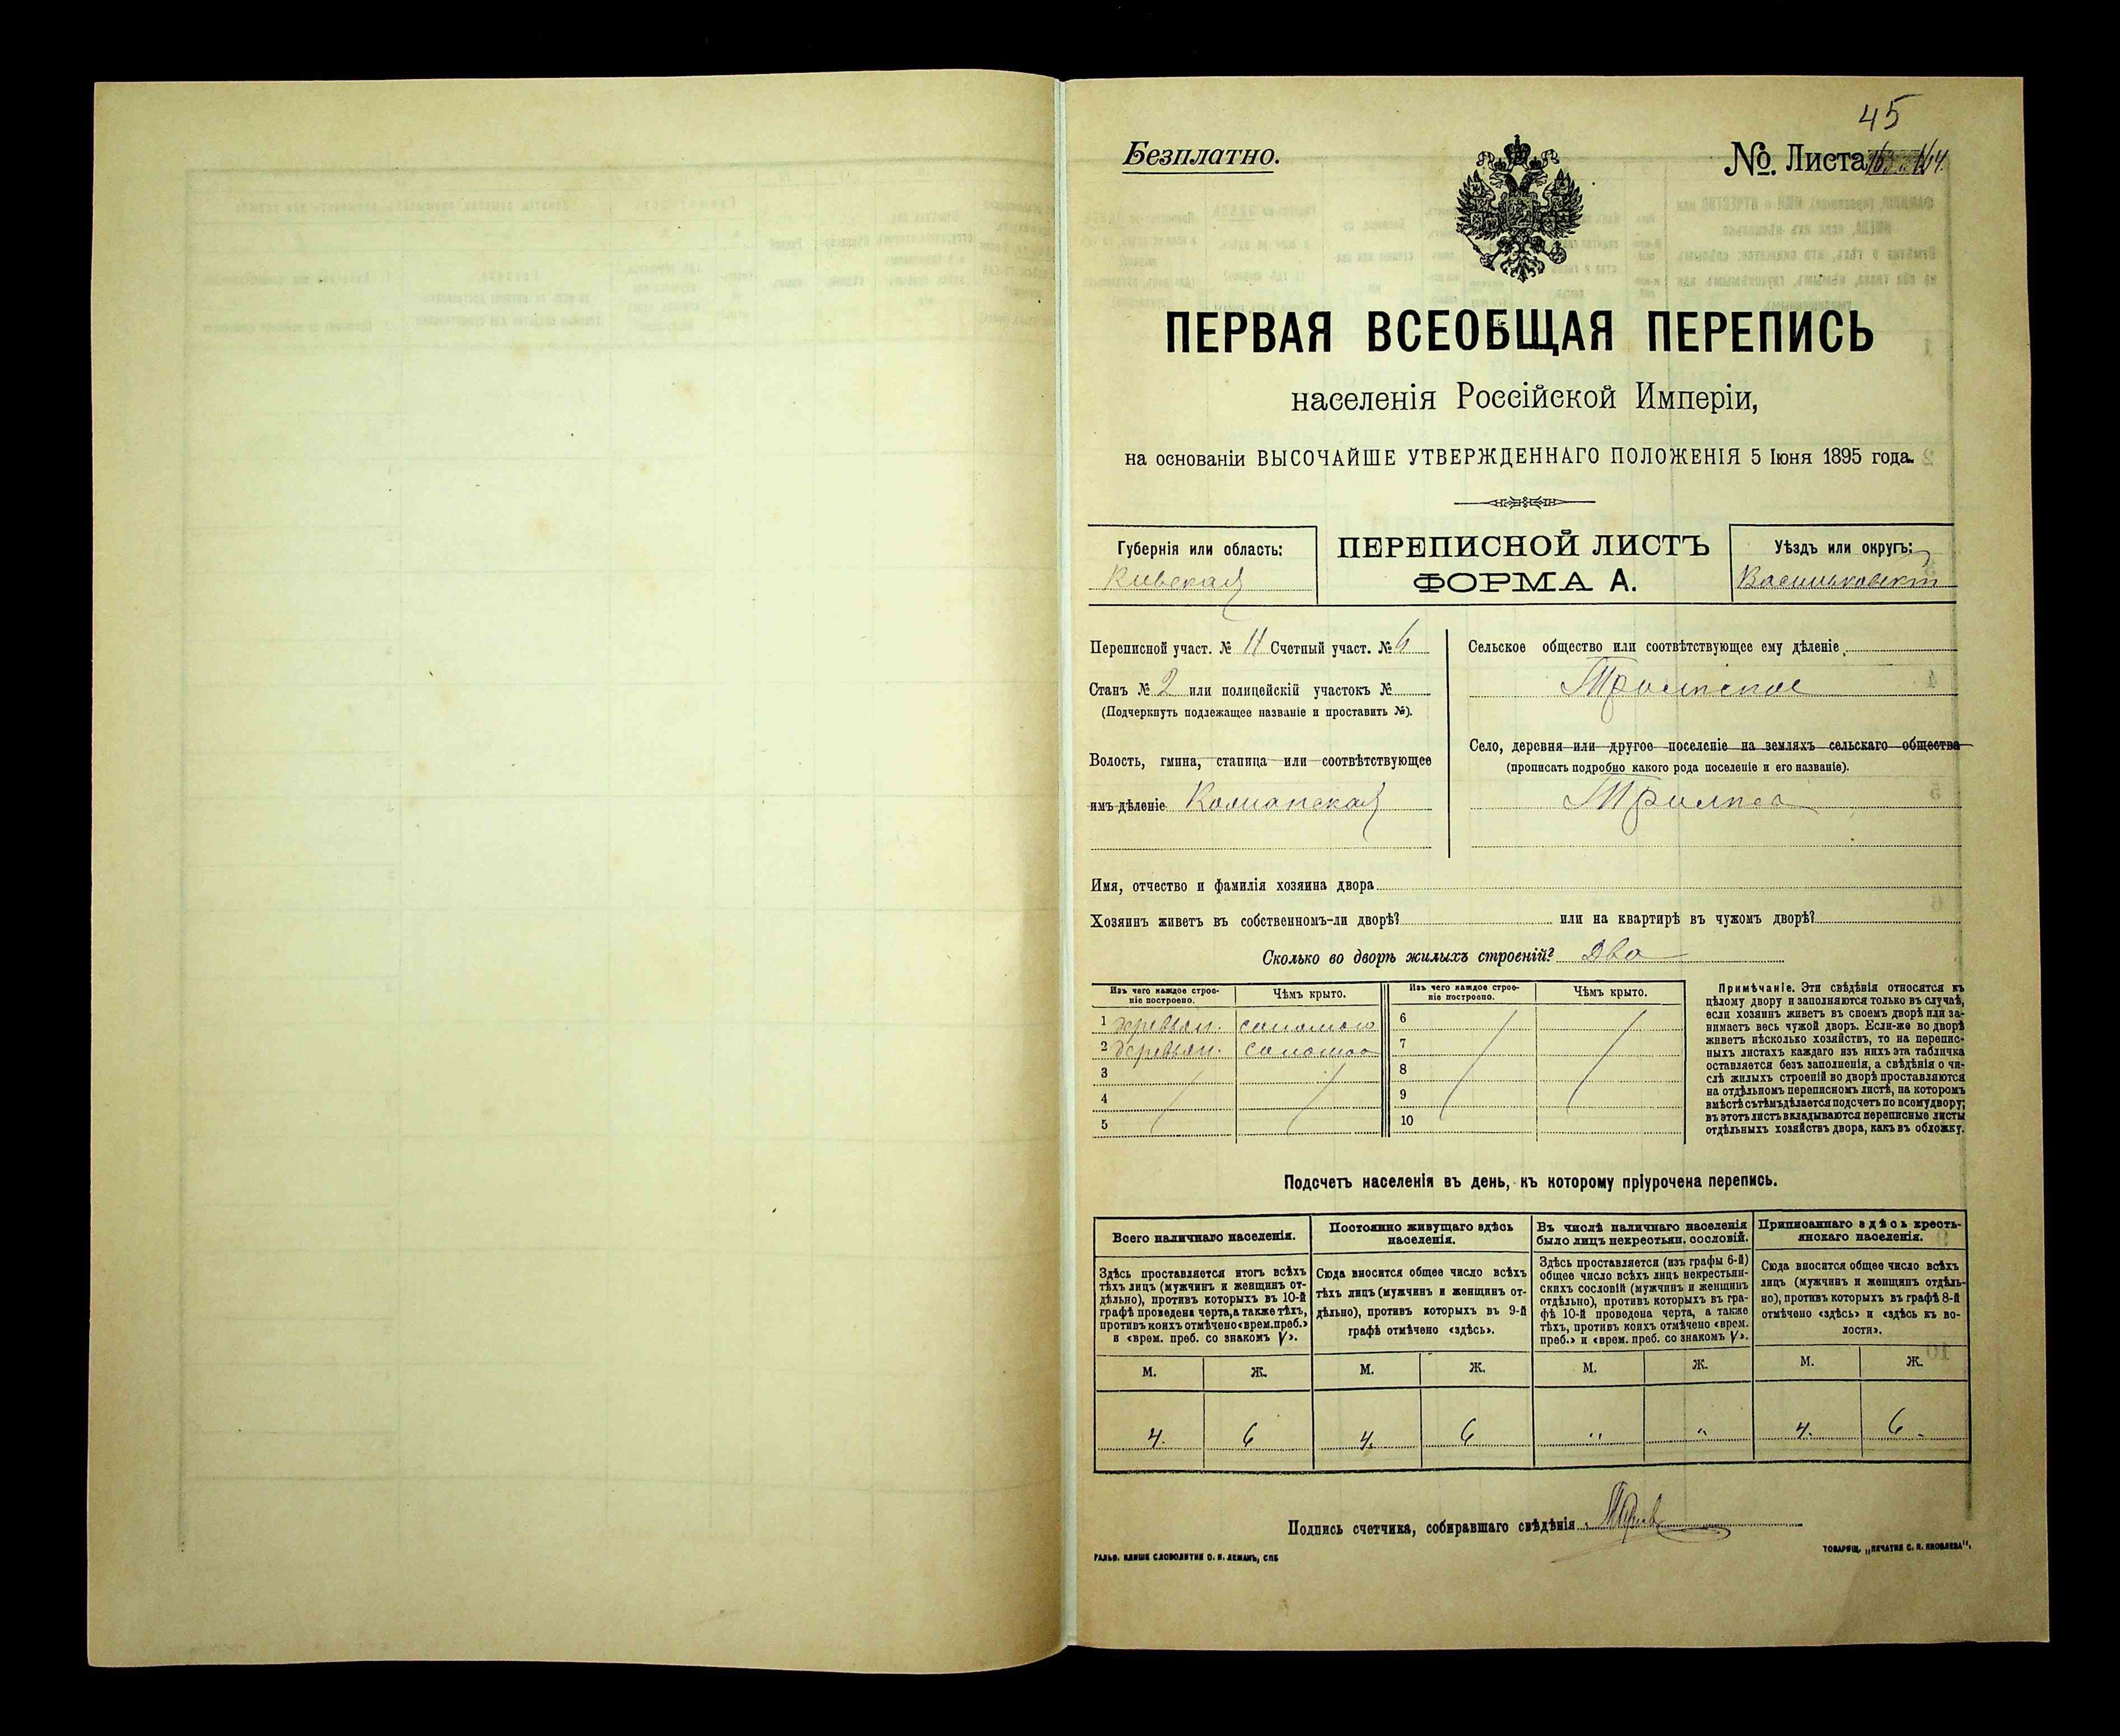 45
Безплатно.
№. Листа 14.
ПЕРВАЯ ВСЕОБЩАЯ ПЕРЕПИСЬ
населенія Россійской Имперіи,
на основаніи ВЫСОЧАЙШЕ УТВЕРЖДЕННАГО ПОЛОЖЕНІЯ 5 Іюня 1895 года.
Губернія или область:
Кіевская
ПЕРЕПИСНОЙ ЛИСТЪ
ФОРМА А.
Уѣздъ или округъ:
Васильковскій
Переписной участ. № 11 Счетный участ. № 6
Станъ № 2 или полицейскій участокъ №
(Подчеркнуть подлежащее названіе и проставить №).
Волость, гмина, станица или соотвѣтствующее
имъ дѣленіе
Сельское общество или соотвѣтствующее ему дѣленіе
Трилѣсское
Село, деревня или другое поселеніе на земляхъ сельскаго общества
(прописать подробно какого рода поселеніе и его названіе).
Трилѣса
Имя, отчество и фамилія хозяина двора
Хозяинъ живетъ въ собственномъ-ли дворѣ? или на квартирѣ въ чужомъ дворѣ?
Сколько во дворѣ жилыхъ строеній? Два
Изъ чего каждое строе-
ніе построено.
Чѣмъ крыто.
Изъ чего каждое строе-
ніе построено.
Чѣмъ крыто.
1 деревян. соломою 6
2 деревян. соломою 7
3 8
4 9
5 10
Примѣчаніе. Эти свѣдѣнія относятся къ
цѣлому двору и заполняются только въ случаѣ,
если хозяинъ живетъ въ своемъ дворѣ или за-
нимаетъ весь чужой дворъ. Если-же во дворѣ
живетъ нѣсколько хозяйствъ, то на перепис-
ныхъ листахъ каждаго изъ нихъ эта табличка
оставляется безъ заполненія, а свѣдѣнія о чи-
слѣ жилыхъ строеній во дворѣ проставляются
на отдѣльномъ переписномъ листѣ, на которомъ
вмѣстѣ съ тѣмъ дѣлается подсчетъ по всему двору;
въ этотъ листъ вкладываются переписные листы
отдѣльныхъ хозяйствъ двора, какъ въ обложку.
Подсчетъ населенія въ день, къ которому пріурочена перепись.
Всего наличнаго населенія.
Здѣсь проставляется итогъ всѣхъ
тѣхъ лицъ (мужчинъ и женщинъ от-
дѣльно), противъ которыхъ въ 10-й
графѣ проведена черта, а также тѣхъ,
противъ коихъ отмѣчено «врем. преб.»
и «врем. преб. со знакомъ V».
Постоянно живущаго здѣсь
населенія.
Сюда вносится общее число всѣхъ
тѣхъ лицъ (мужчинъ и женщинъ от-
дѣльно), противъ которыхъ въ 9-й
графѣ отмѣчено «здѣсь».
Въ числѣ наличнаго населенія
было лицъ некрестьян. сословій.
Здѣсь проставляется (изъ графы 6-й)
общее число всѣхъ лицъ некрестьян-
скихъ сословій (мужчинъ и женщинъ
отдѣльно), противъ которыхъ въ гра-
фѣ 10-й проведена черта, а также
тѣхъ, противъ коихъ отмѣчено «врем.
преб.» и «врем. преб. со знакомъ V».
Приписаннаго здѣсь кресть-
янскаго населенія.
Сюда вносится общее число всѣхъ
лицъ (мужчинъ и женщинъ отдѣль-
но), противъ которыхъ въ графѣ 8-й
отмѣчено «здѣсь» и «здѣсь къ во-
лости».
М. Ж. М. Ж. М. Ж. М. Ж.
4. 6 4. 6 " " 4. 6.
Подпись счетчика, собиравшаго свѣдѣнія
ГАЛЬВ. КЛИШЕ СЛОВОЛИТНИ О. И. ЛЕМАНЪ, СПБ
ТОВАРИЩ. „ПЕЧАТНЯ С. П. ЯКОВЛЕВА".